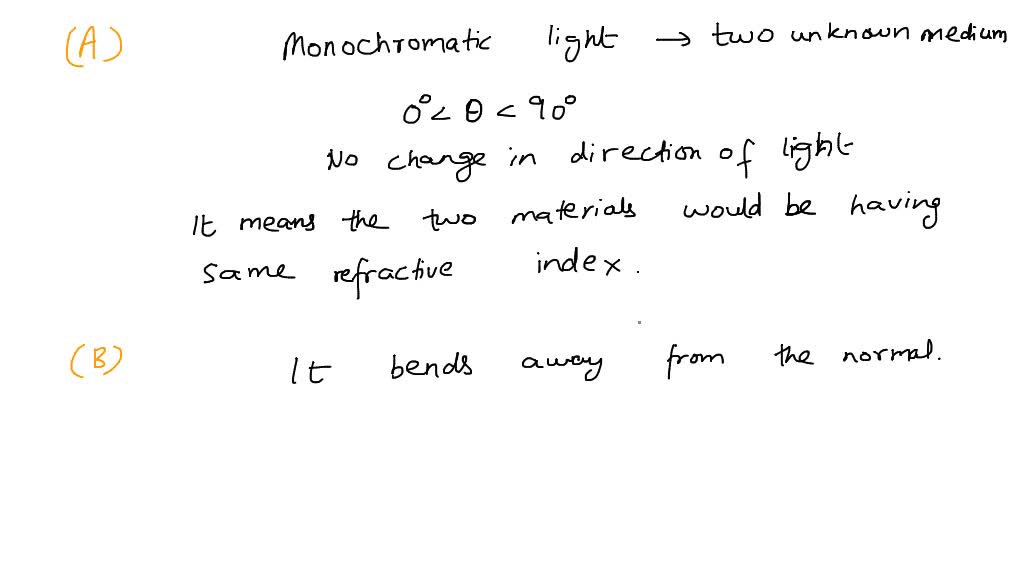 (A) Monochromatic light → two unknown medium
0° < θ < 90°
No change in direction of light
It means the two materials would be having
same refractive index.
(B) It bends away from the normal.